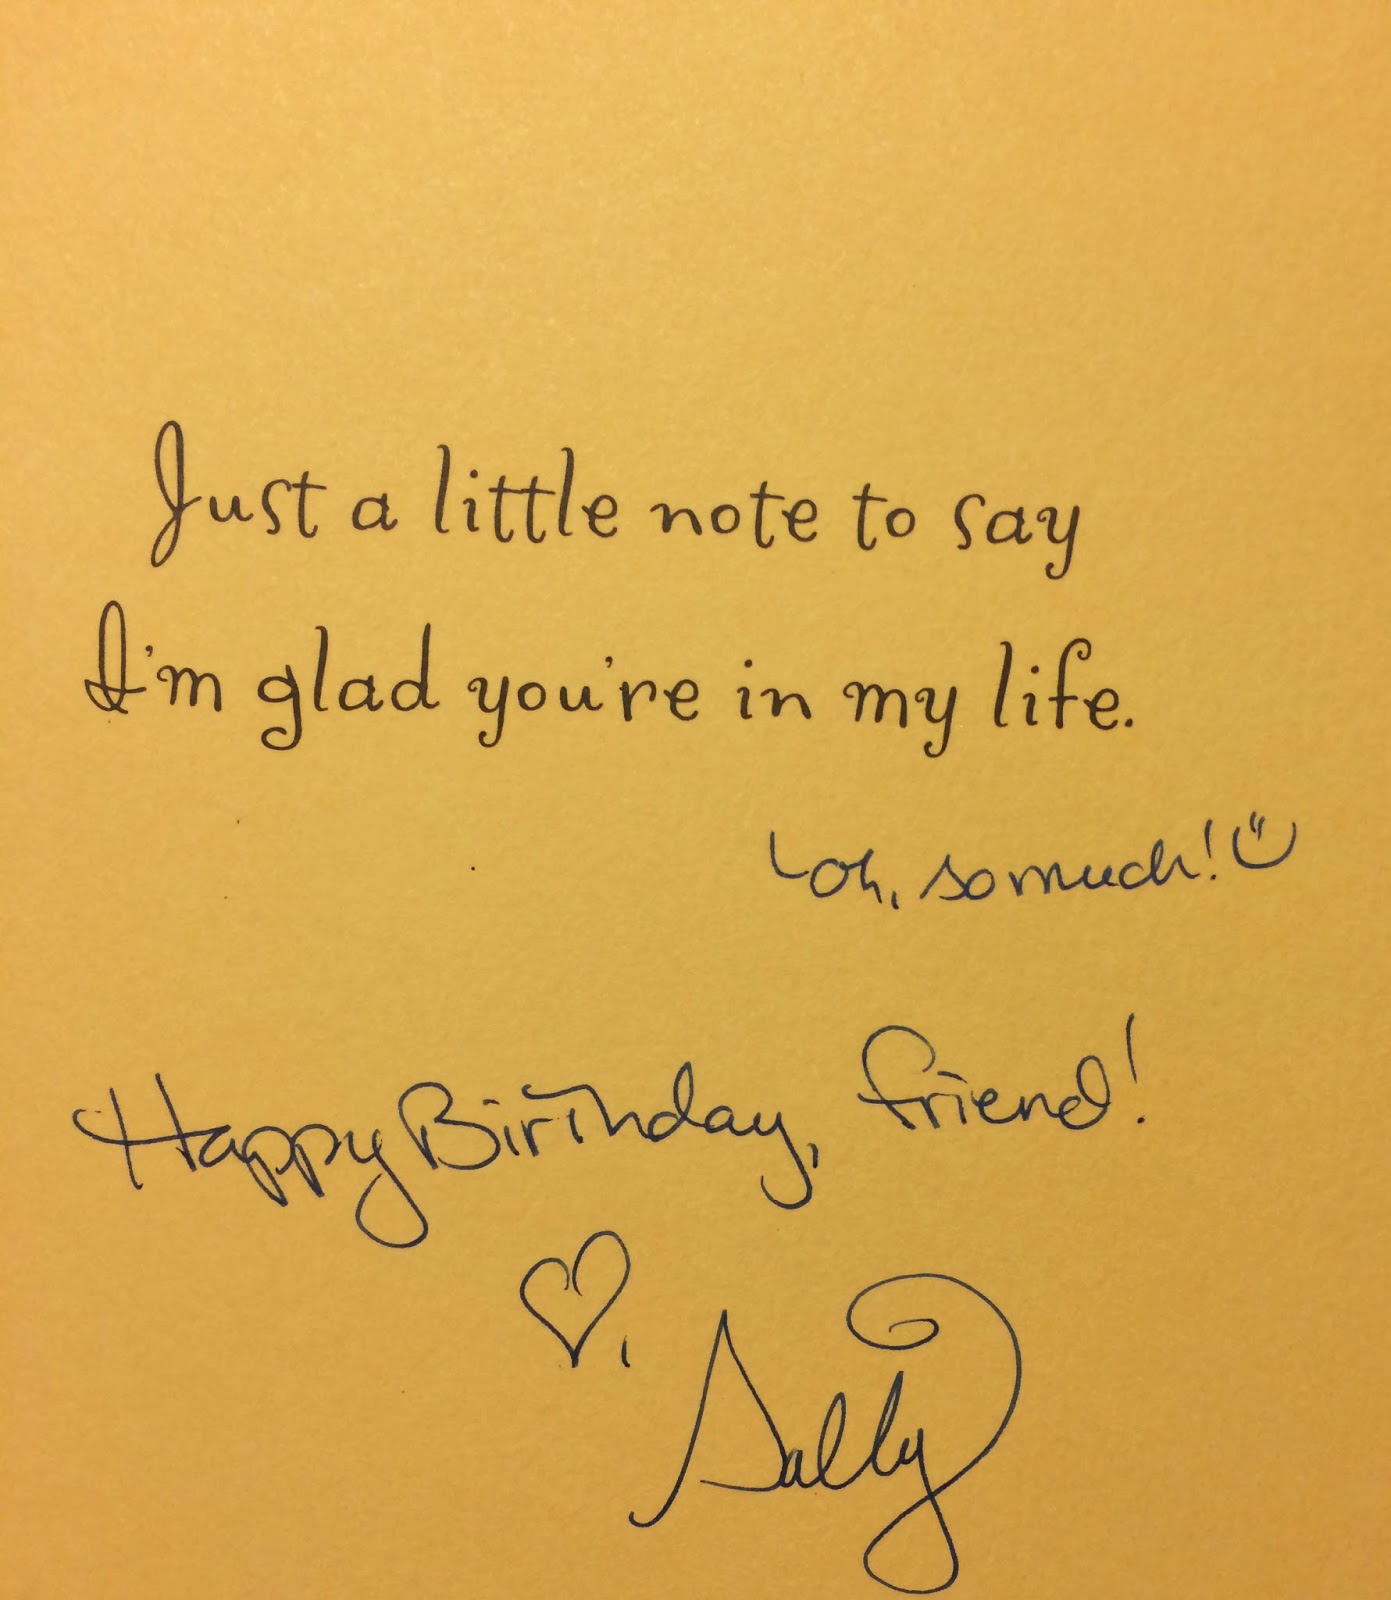 Just a little note to say
I'm glad you're in my life.
oh, so much!
Happy Birthday, friend!
Sally